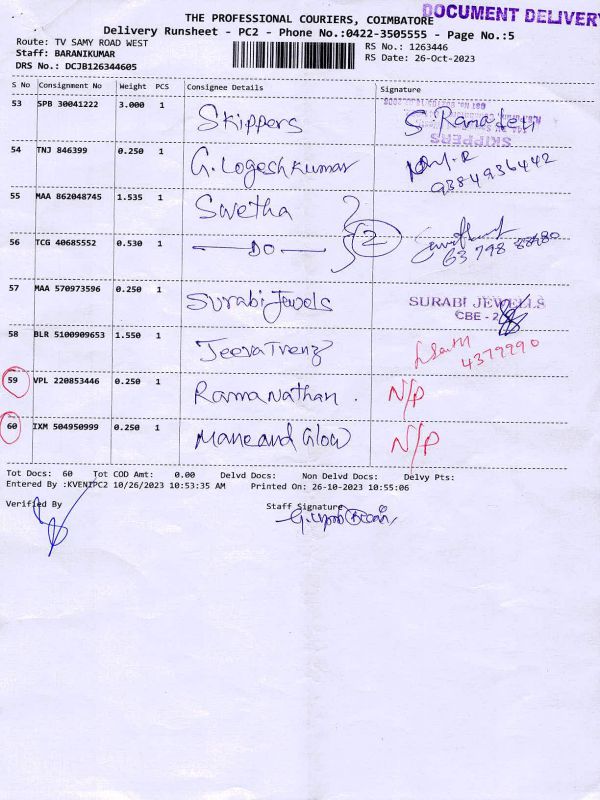 THE PROFESSIONAL COURIERS, COIMBATORE
DOCUMENT DELIVERY
Delivery Runsheet - PC2 - Phone No.:0422-3505555 - Page No.:5
Route: TV SAMY ROAD WEST
RS No.: 1263446
Staff: BARANIKUMAR
RS Date: 26-Oct-2023
DRS No.: DCJB126344605
S No Consignment No Weight PCS Consignee Details Signature
53 SPB 30041222 3.000 1 Skippers S. Ramadevi
SKIPPERS
54 TNJ 846399 0.250 1 G. Logesh kumar
9384936442
55 MAA 862048745 1.535 1 Swetha
56 TCG 40685552 0.530 1 DO 2 63798
57 MAA 570973596 0.250 1 Surabi Jewels SURABI JEWELLS
CBE - 2
58 BLR 5100909653 1.550 1 Jeeva Trenz 4379990
59 VPL 220853446 0.250 1 Ramanathan. N/P
60 IXM 504950999 0.250 1 Mane and Glow N/P
Tot Docs: 60 Tot COD Amt: 0.00 Delvd Docs: Non Delvd Docs: Delvy Pts:
Entered By :KVENIPC2 10/26/2023 10:53:35 AM Printed On: 26-10-2023 10:55:06
Verified By Staff Signature